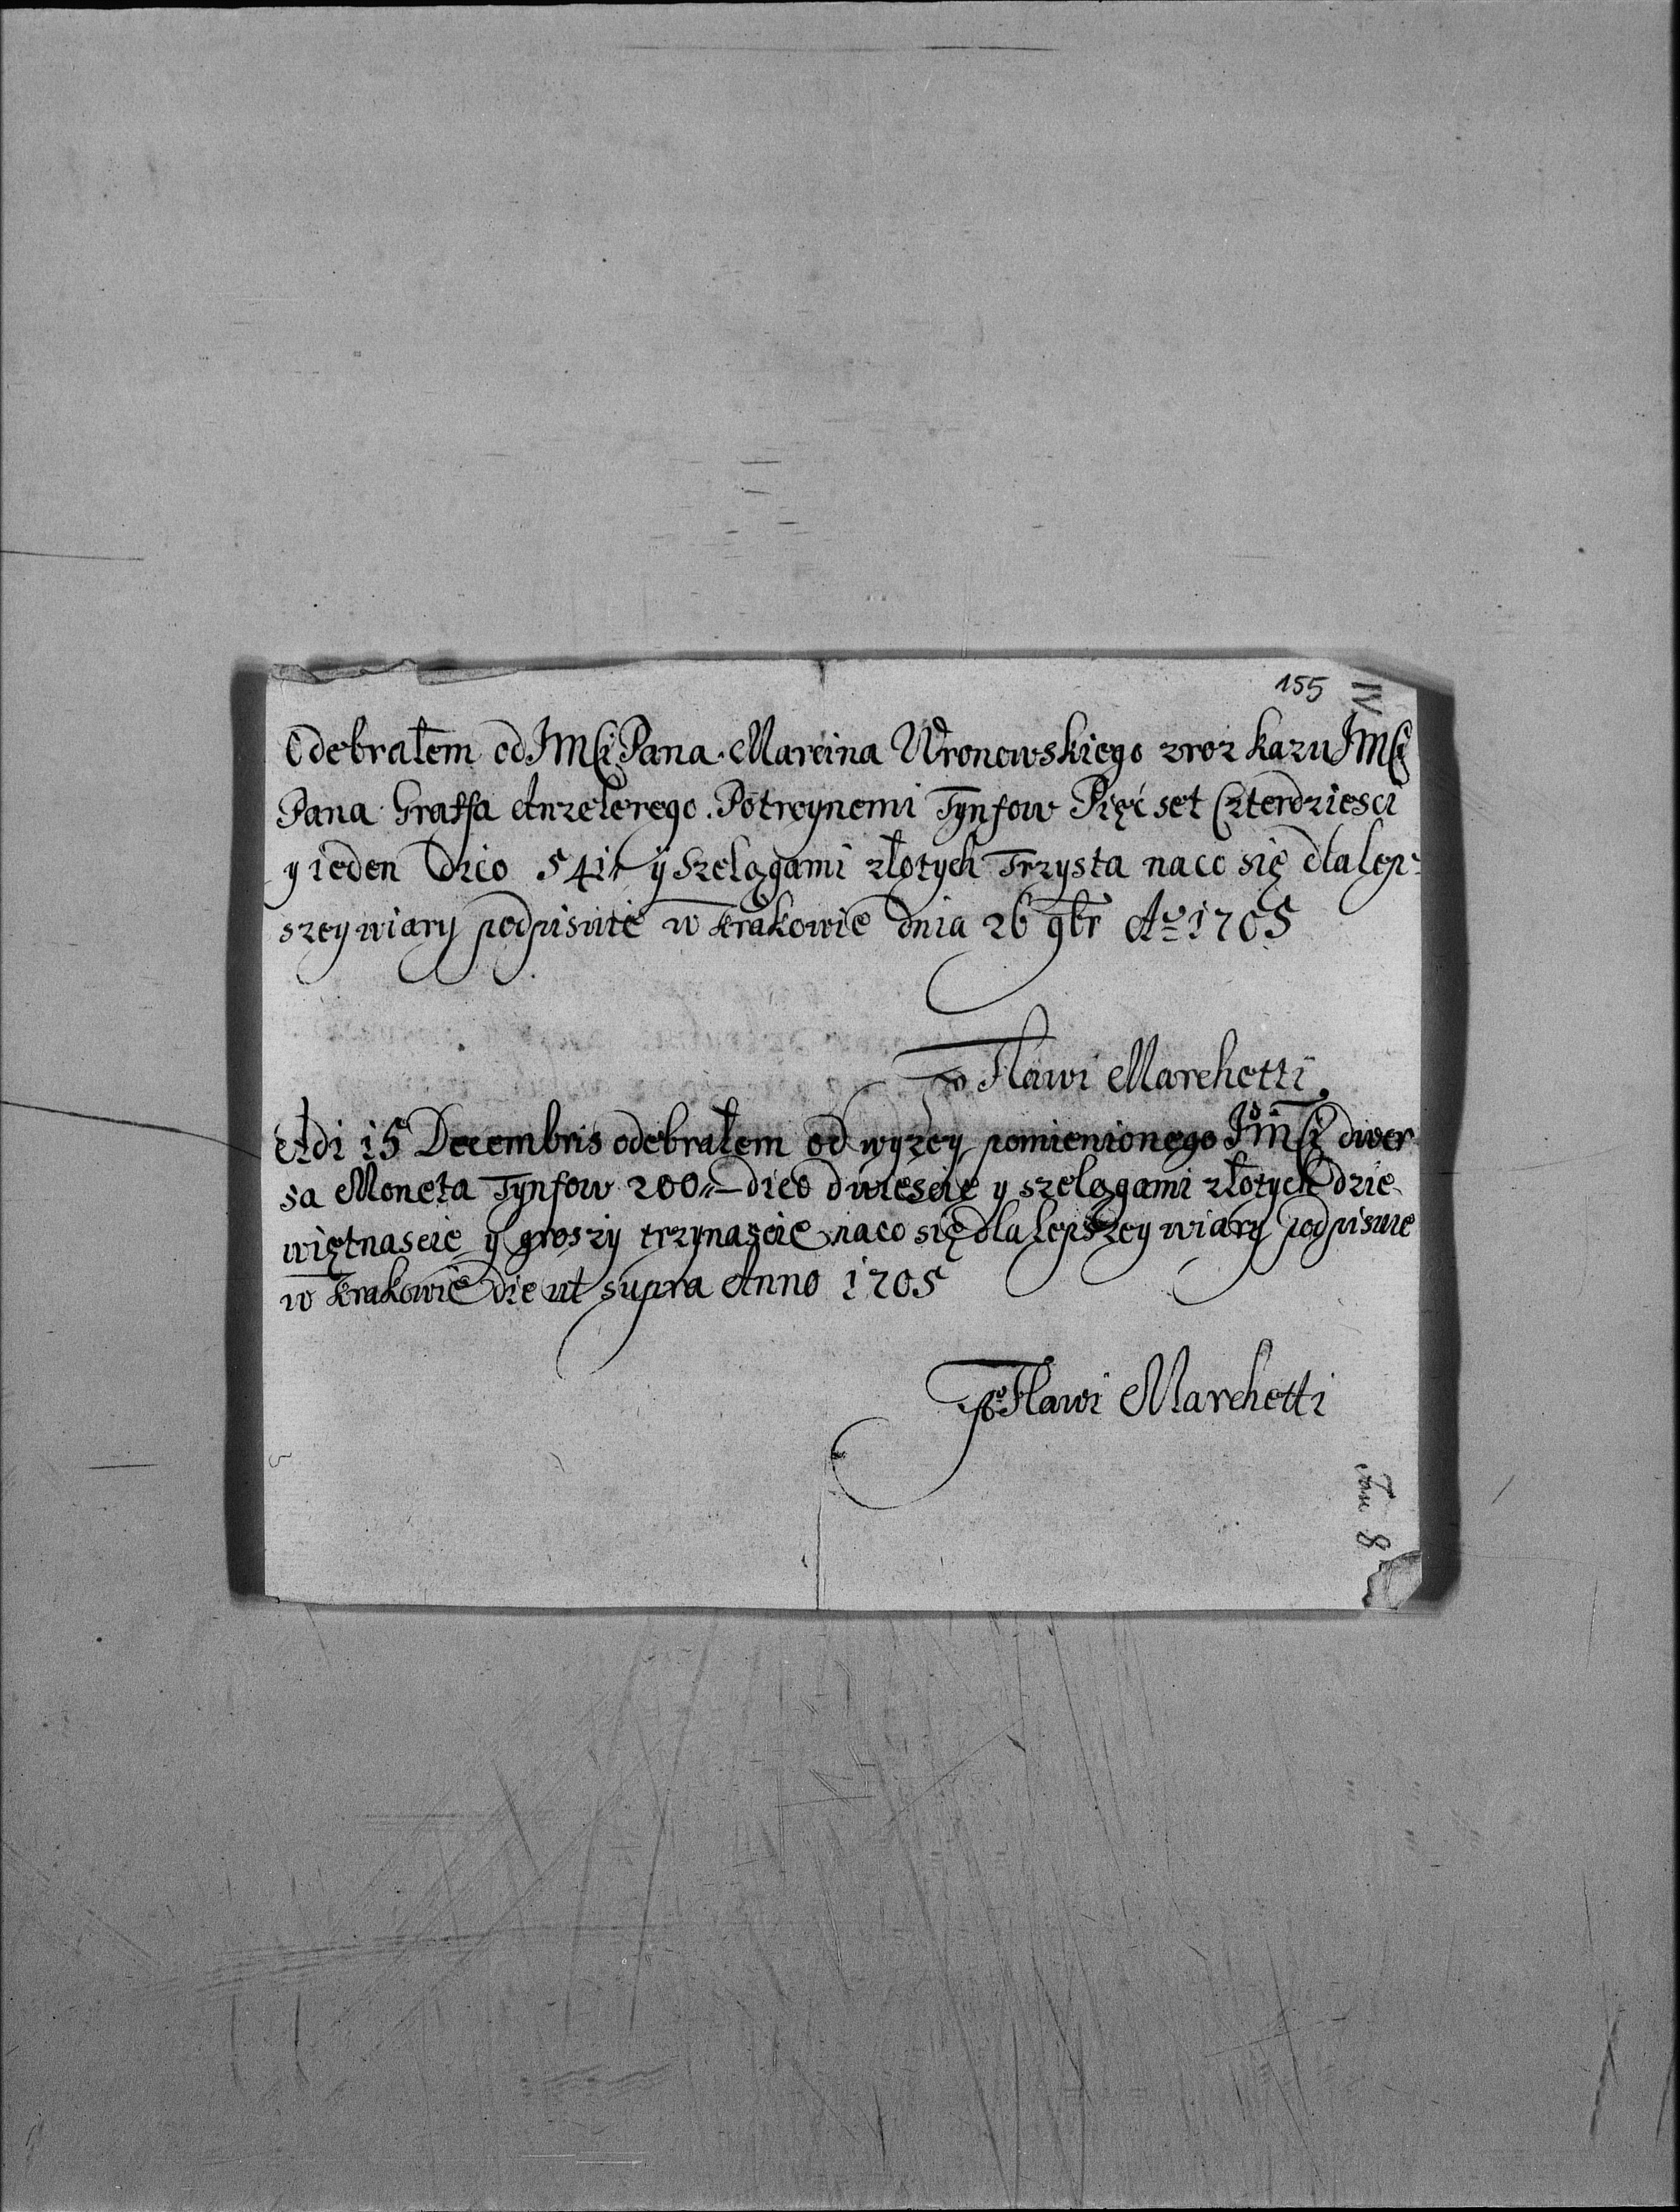 155
IV
Odebrałem od JMCi Pana Marcina Wronowskiego zroz kazu JMCi
Pana Graffa Anzelerego. Potroynemi Tynfow Pięć set Czterdziesci
y ieden dico 541 ÿ Szelągami złotych Trzysta naco się dla lep:
szey wiary podpisuie w Krakowie dnia 26 9br Aº 1705
Flawi Marchetti
Adi 15 Decembris odebrałem od wyzey pomienionego JmCi diver
sa Moneta Tynfow 200 dico dwiescie y szelągami złotych dzie
więtnascie y groszy trzynascie naco się dla lepszey wiary podpisuie
w Krakowie die ut supra Anno 1705
Flawi Marchetti
8